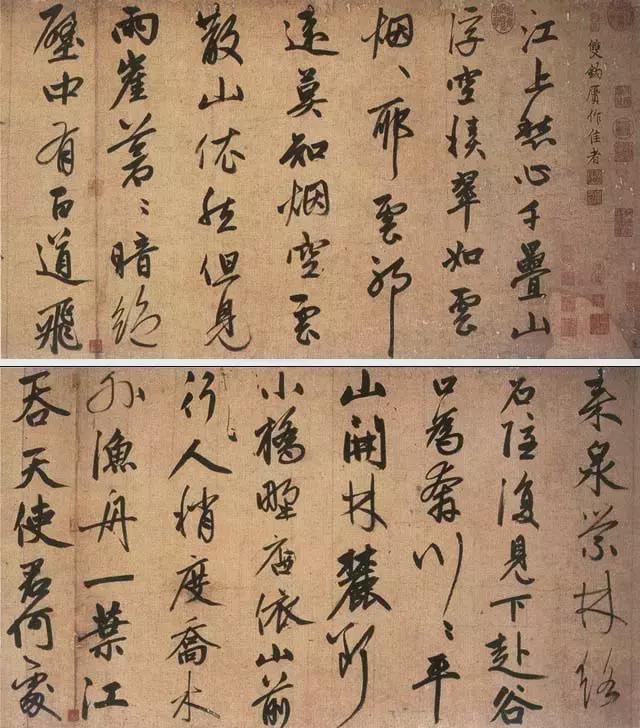 雙鈎贋作佳者
江上愁心千疊山
浮空積翠如雲
烟、耶雲邪
遠莫知烟空雲
散山依然但見
兩崖蒼〻暗絕
壑中有百道飛
來泉縈林絡
石隱復見下赴谷
口為奔川〻平
山開林麓斷
小橋野店依山前
行人稍度喬木
外漁舟一葉江
吞天使君何處